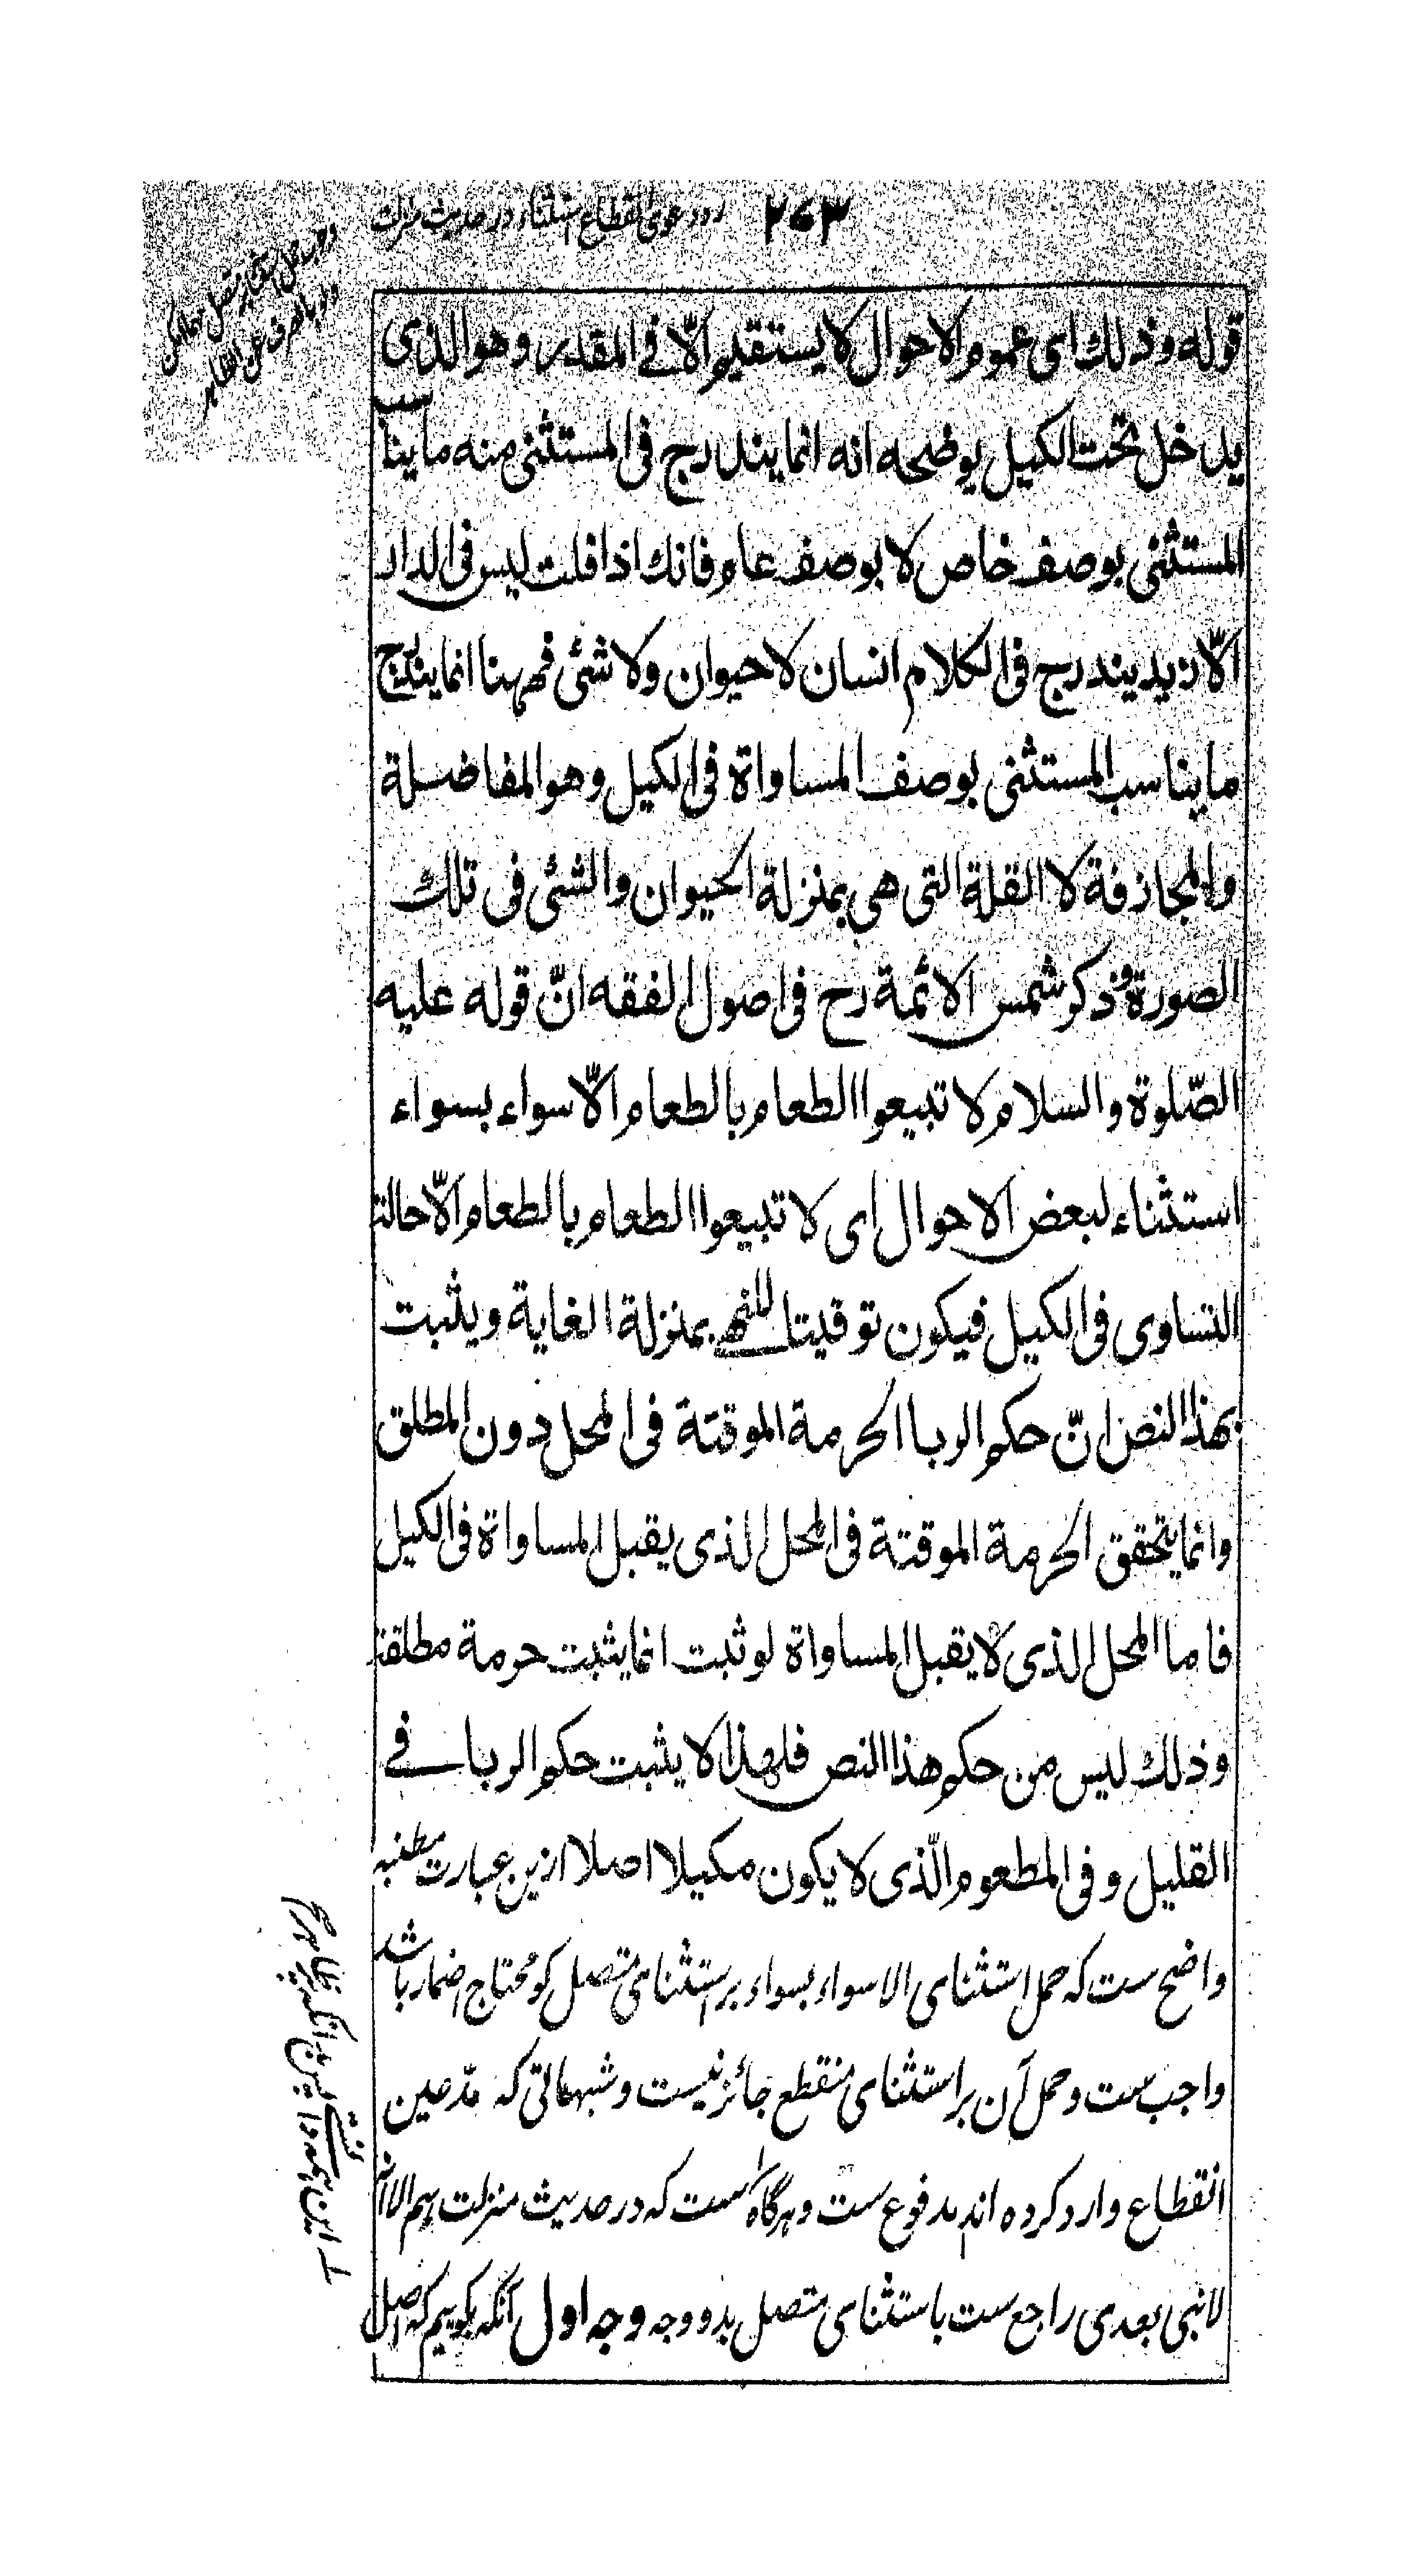 ۲۶۳ رد دعوی انقطاع استثناء در حدیث منزلت
قوله وذلك ای عموم الاحوال لا یستقیم الّا فی المقدر وهو الذی
یدخل تحت الکیل یوضحه انه انما یندرج فی المستثنی منه ما یناسب
المستثنی بوصف خاص لا بوصف عام فانك اذا قلت لیس فی الدار
الّا زید یندرج فی الکلام انسان لا حیوان ولا شئ فههنا انما یندرج
ما یناسب المستثنی بوصف المساواة فی الکیل وهو المفاضلة
والمجازفة لا القلة التی هی بمنزلة الحیوان والشئ فی تلك
الصورة وذکر شمس الائمة رح فی اصول الفقه انّ قوله علیه
الصّلوة والسلام لا تبیعوا الطعام بالطعام الّا سواء بسواء
استثناء لبعض الاحوال ای لا تبیعوا الطعام بالطعام الّا حالة
التساوی فی الکیل فیکون توقیتا للنهی بمنزلة الغایة ویثبت
بهذا النص انّ حکم الربا الحرمة الموقتة فی المحل دون المطلق
وانما یتحقق الحرمة الموقتة فی المحل الذی یقبل المساواة فی الکیل
فاما المحل الذی لا یقبل المساواة لو ثبت انما یثبت حرمة مطلقة
وذلك لیس من حکم هذا النص فلهذا لا یثبت حکم الربا فی
القلیل وفی المطعوم الّذی لا یکون مکیلا اصلا ازین عبارت مطنبه
واضح ست که حمل استثنای الا سواء بسواء بر استثنای متصل کو محتاج اضمار باشد
واجب ست و حمل آن بر استثنای منقطع جائز نیست و شبهاتی که مدّعین
انقطاع وارد کرده اند مدفوع ست و هرگاه است که در حدیث منزلت هم الا انه
لا نبی بعدی راجع ست باستثنای متصل بدو وجه وجه اول آنکه بگوییم که اصل